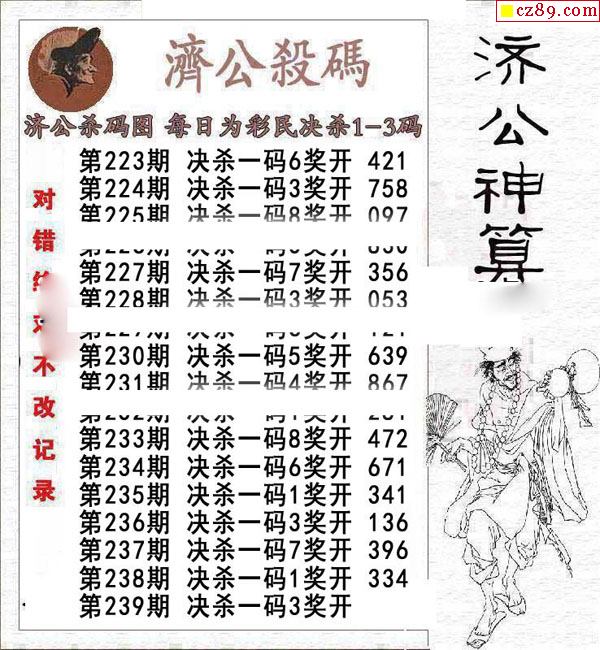 cz89.com
濟公殺碼
济公杀码图 每日为彩民决杀1-3码
第223期 决杀一码6奖开 421
第224期 决杀一码3奖开 758
第225期 决杀一码8奖开 097
第227期 决杀一码7奖开 356
第228期 决杀一码3奖开 053
第230期 决杀一码5奖开 639
第231期 决杀一码4奖开 867
第233期 决杀一码8奖开 472
第234期 决杀一码6奖开 671
第235期 决杀一码1奖开 341
第236期 决杀一码3奖开 136
第237期 决杀一码7奖开 396
第238期 决杀一码1奖开 334
第239期 决杀一码3奖开
对错
不改记录
济公神算